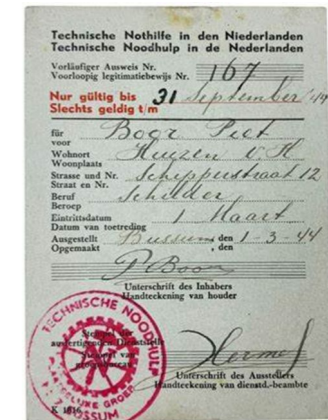 Technische Nothilfe in den Niederlanden
Technische Noodhulp in de Nederlanden
Vorläufiger Ausweis Nr.
Voorloopig legitimatiebewijs Nr. 167
Nur gültig bis
Slechts geldig t/m 31 September '44
für
voor Boor Piet
Wohnort
Woonplaats Huizen N.H
Strasse und Nr.
Straat en Nr. Schipperstraat 12
Beruf
Beroep Schilder
Eintrittsdatum
Datum van toetreding 1 Maart
Ausgestellt Bussum, den 1-3-44
Opgemaakt , den
P. Boor
Unterschrift des Inhabers
Handteekening van houder
TECHNISCHE NOODHULP
PLAATSELIJKE GROEP
BUSSUM
Stempel der
ausfertigenden Dienststelle
Stempel van
Unterschrift des Ausstellers
Handteekening van dienstd.-beambte
K 1816